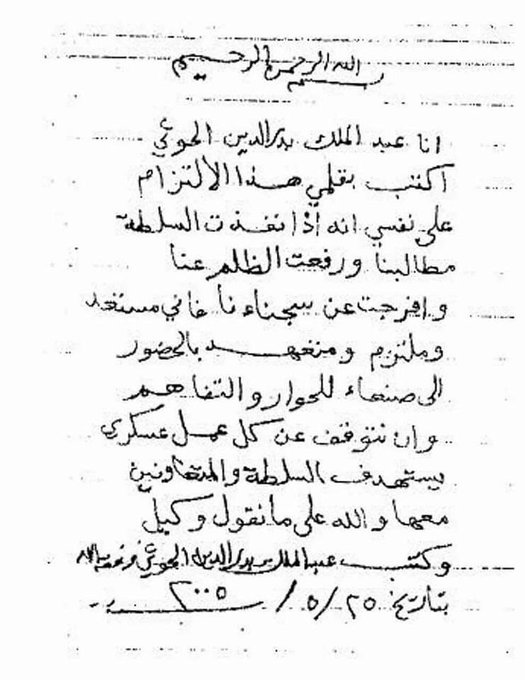 بسم الله الرحمن الرحيم
انا عبد الملك بدرالدين الحوثي
اكتب بقلمي هذا الالتزام
على نفسي انه اذا نفذت السلطة
مطالبنا ورفعت الظلم عنا
وافرجت عن سجناءنا فاني مستعد
وملتزم ومتعهد بالحضور
الى صنعاء للحوار والتفاهم
وان نتوقف عن كل عمل عسكري
يستهدف السلطة والمتعاونين
معها والله على مانقول وكيل
وكتب عبد الملك بدرالدين الحوثي
بتاريخ ٢٥/٥/٢٠٠٥